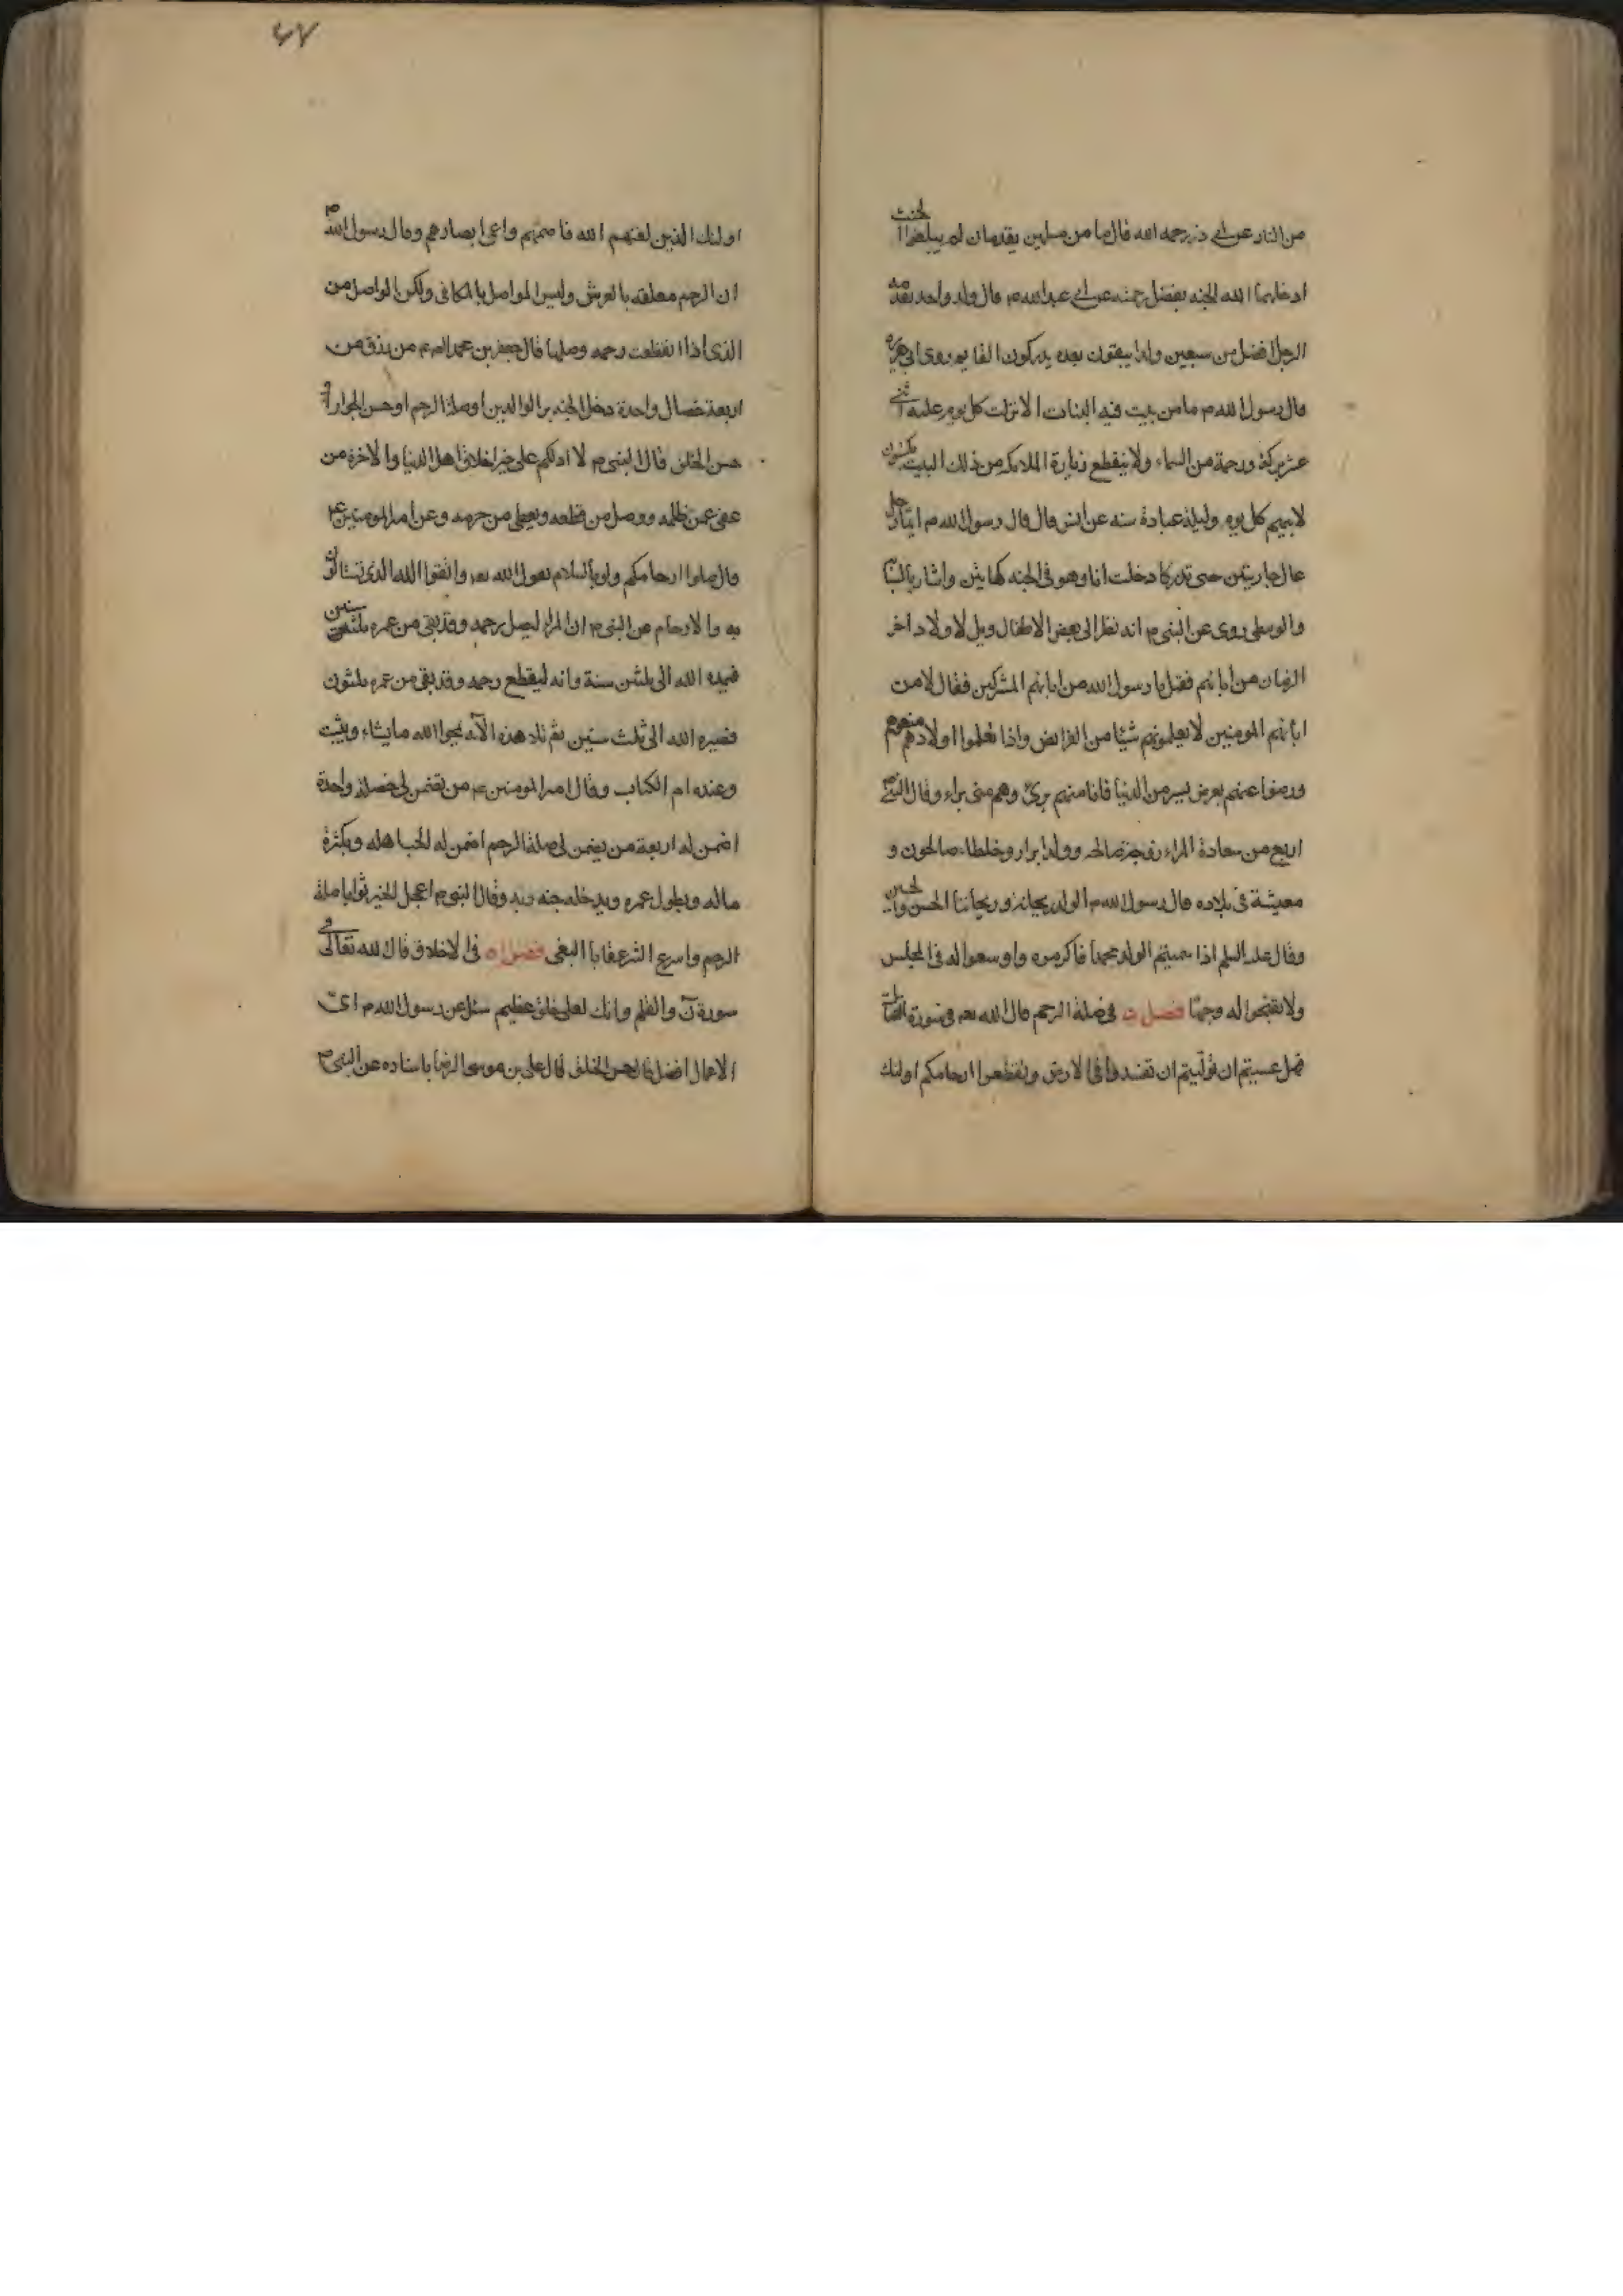 من النار عن ابي ذر رحمه الله قال ما من مسلمين يقدمان لم يبلغوا الحنث
ادخلهما الله الجنه بفضل رحمته عن ابي عبد الله م قال ولد واحد يقدمه
الرجل افضل من سبعين ولدا يبقون بعده يدركون القايم روى ابي هريره
قال رسول الله م ما من بيت فيه البنات الا نزلت كل يوم عليه اثنى
عشر بركة ورحمة من السماء ولا ينقطع زيارة الملائكه من ذلك البيت يكتبون
لابيهم كل يوم وليلة عبادة سنه عن انس قال قال رسول الله م ايما رجل
عال جاريتين حتى تدركا دخلت انا وهو في الجنه كهاتين واشار بالسبابه
والوسطى روى عن النبي م انه نظر الى بعض الاطفال ويل لاولاد اخر
الزمان من ابائهم فقيل يا رسول الله من ابائهم المشركين فقال لا من
ابائهم المومنين لا يعلمونهم شيئا من الفرايض واذا تعلموا اولادهم منعوهم
ورضوا عنهم بعرض يسير من الدنيا فانا منهم برئ وهم منى براء وقال النبي م
اربع من سعادة المراء زوجة صالحه وولد ابرار وخلطاء صالحون و
معيشة فى بلاده قال رسول الله م الولد ريحانة وريحانتا الحسن والحسين
وقال عليه السلم اذا سميتم الولد محمدا فاكرموه واوسعوا له فى المجلس
ولا تقبحوا له وجها فصل ن فى صلة الرحم قال الله تعـ فى سورة القتال
فهل عسيتم ان توليتم ان تفسدوا فى الارض وتقطعوا ارحامكم اولئك
٤٧
اولئك الذين لعنهم الله فاصمهم واعمى ابصارهم وقال رسول الله ص
ان الرحم معلقه بالعرش وليس الواصل بالمكافى ولكن الواصل من
الذى اذا انقطعت رحمه وصلها قال جعفر بن محمد م من رزق من
اربعة خصال واحدة دخل الجنه بر الوالدين او صلة الرحم او حسن الجوار او
حسن الخلق قال النبي م لا ادلكم على خير اخلاق اهل الدنيا والاخرة من
عفى عمن ظلمه ووصل من قطعه ويعطى من حرمه وعن امير المومنين ع
قال صلوا ارحامكم ولو بالسلام يقول الله تعـ واتقوا الله الذى تسالون
به والارحام عن النبي م ان المراء ليصل رحمه وقد بقى من عمره ثلث سنين
فيمده الله الى ثلثين سنة وانه ليقطع رحمه وقد بقى من عمره ثلثون
فصيره الله الى ثلث سنين ثم تلا هذه الآيه يمحوا الله ما يشاء ويثبت
وعنده ام الكتاب وقال امير المومنين ع من تضمن لى خصلة واحدة
اضمن له اربعة من يضمن لى صلة الرحم اضمن له يحب اهله ويكثرة
ماله ويطول عمره ويدخله جنه ربه وقال النبي م اعجل الخير ثوابا صلة
الرحم واسرع الشر عقابا البغى فصل ن فى الاخلاق قال الله تعالى فى
سورة ن والقلم وانك لعلى خلق عظيم سئل عن رسول الله م اى
الاعمال افضل قال حسن الخلق قال على بن موسى الرضا باسناده عن النبي م